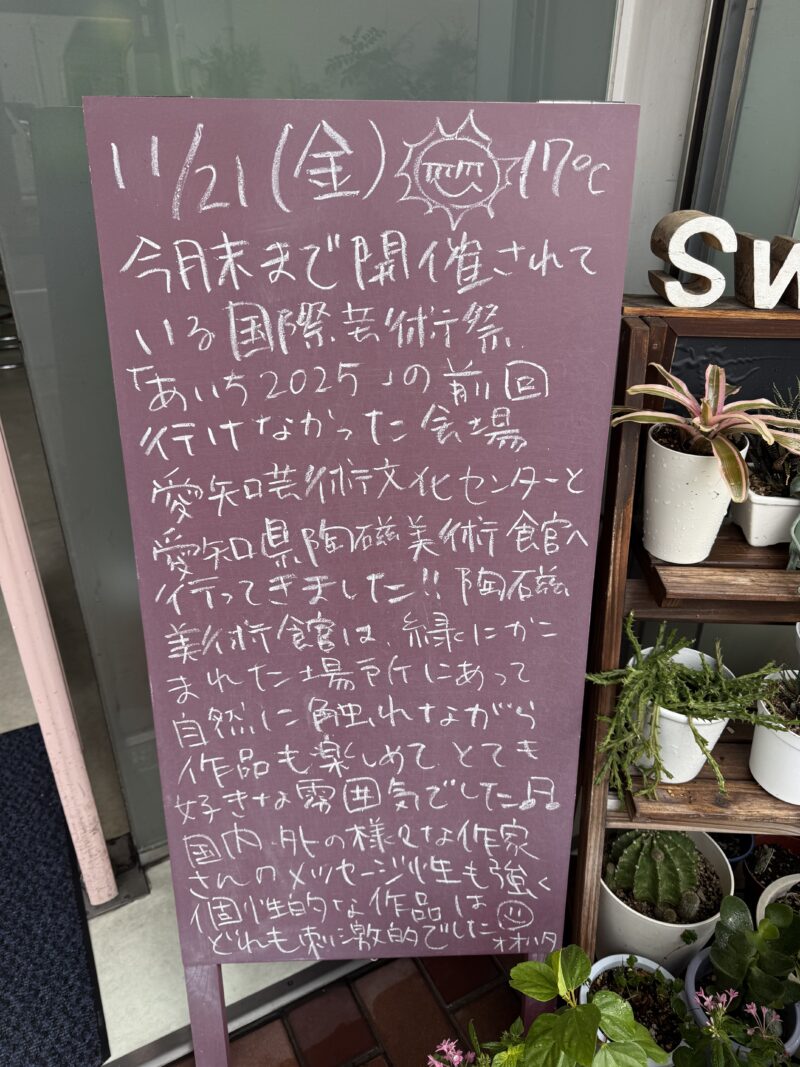 11/21(金) 17℃
今月末まで開催されて
いる国際芸術祭
「あいち2025」の前回
行けなかった会場
愛知芸術文化センターと
愛知県陶磁美術館へ
行ってきました!! 陶磁
美術館は、緑にかこ
まれた場所にあって
自然に触れながら
作品も楽しめて、とても
好きな雰囲気でした♫
国内、外の様々な作家
さんのメッセージ性も強く
個性的な作品は
どれも刺激的でした
Sw